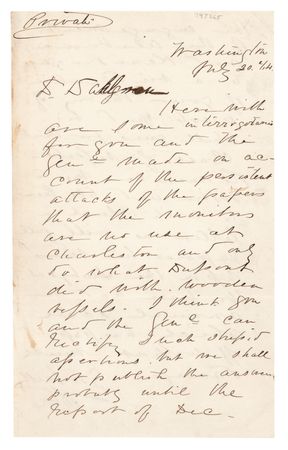 Private
Washington
July 20. 64
D. Dahlgren
Here with
are some interrogatories
for you and the
Genl made on ac-
count of the persistent
attacks of the papers
that the monitors
are no use at
Charleston and only
do what Dupont
did with wooden
vessels. I think you
and the Genl can
rectify such stupid
assertions. but we shall
not publish the answers
probably until the
report of Dec.